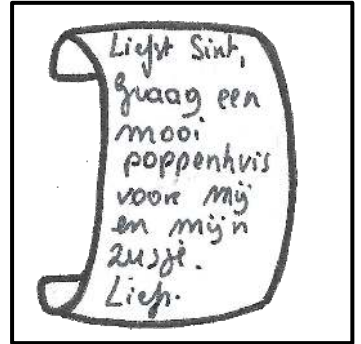 Liefst Sint,
graag een
mooi
poppenhuis
voor mij
en mijn
zusje.
Liefs.